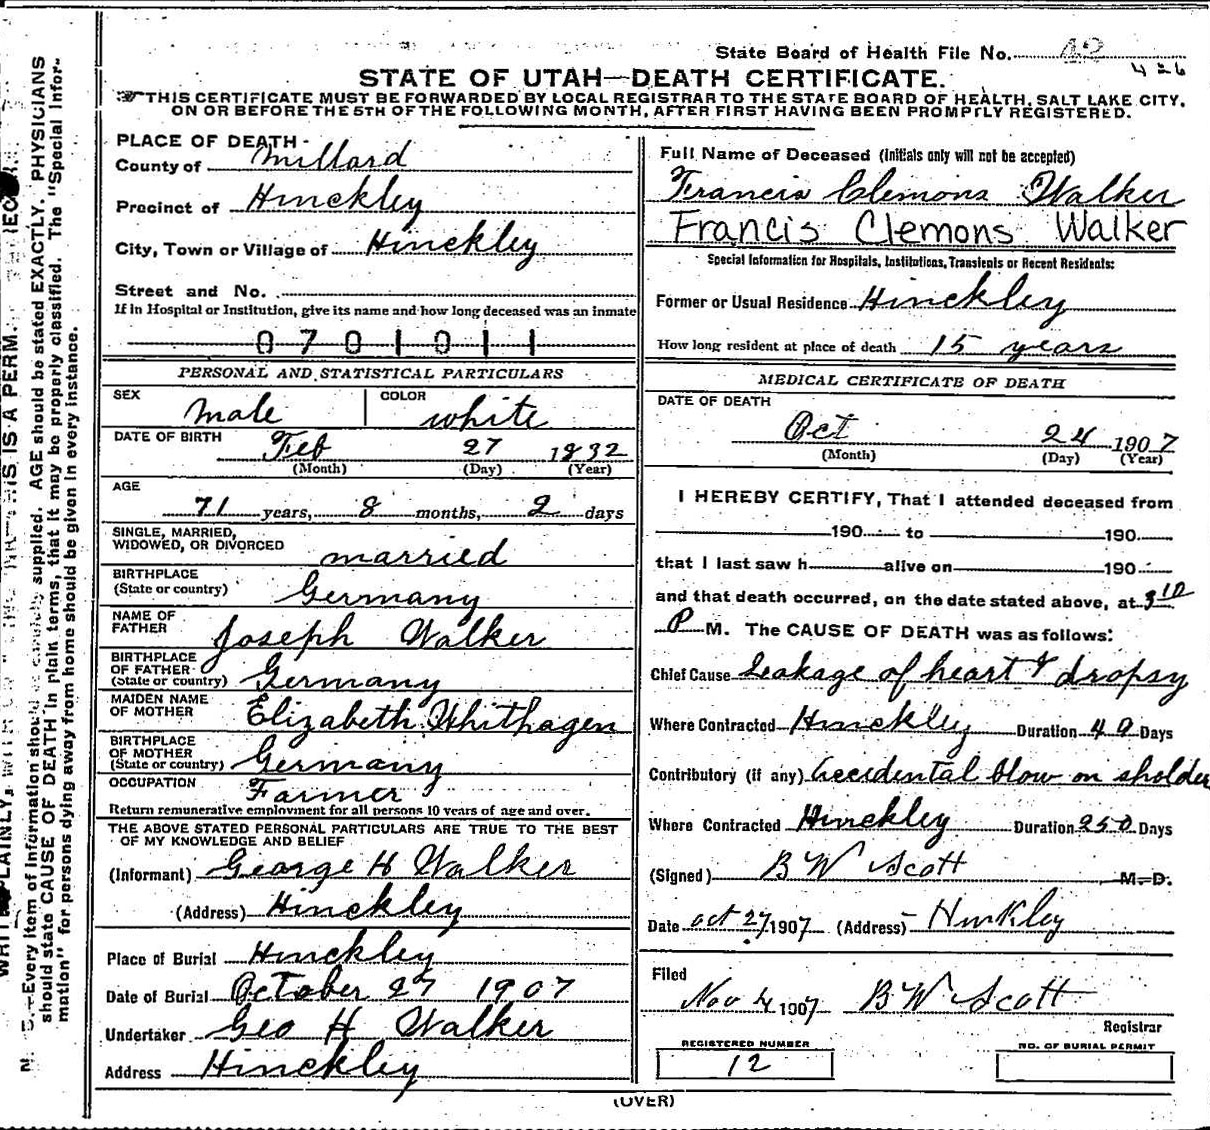 State Board of Health File No. 42
426
STATE OF UTAH—DEATH CERTIFICATE.
THIS CERTIFICATE MUST BE FORWARDED BY LOCAL REGISTRAR TO THE STATE BOARD OF HEALTH, SALT LAKE CITY,
ON OR BEFORE THE 5TH OF THE FOLLOWING MONTH, AFTER FIRST HAVING BEEN PROMPTLY REGISTERED.
PLACE OF DEATH
County of Millard
Precinct of Hinckley
City, Town or Village of Hinckley
Street and No.
If in Hospital or Institution, give its name and how long deceased was an inmate
0701011
PERSONAL AND STATISTICAL PARTICULARS
SEX male COLOR white
DATE OF BIRTH Feb 27 1832
(Month) (Day) (Year)
AGE
71 years, 8 months, 2 days
SINGLE, MARRIED,
WIDOWED, OR DIVORCED married
BIRTHPLACE
(State or country) Germany
NAME OF
FATHER Joseph Walker
BIRTHPLACE
OF FATHER
(State or country) Germany
MAIDEN NAME
OF MOTHER Elizabeth Whithagen
BIRTHPLACE
OF MOTHER
(State or country) Germany
OCCUPATION Farmer
Return remunerative employment for all persons 10 years of age and over.
THE ABOVE STATED PERSONAL PARTICULARS ARE TRUE TO THE BEST
OF MY KNOWLEDGE AND BELIEF
(Informant) George H Walker
(Address) Hinckley
Place of Burial Hinckley
Date of Burial October 27 1907
Undertaker Geo H Walker
Address Hinckley
Full Name of Deceased (Initials only will not be accepted)
Francis Clemons Walker
Francis Clemons Walker
Special Information for Hospitals, Institutions, Transients or Recent Residents:
Former or Usual Residence Hinckley
How long resident at place of death 15 years
MEDICAL CERTIFICATE OF DEATH
DATE OF DEATH
Oct 24 1907
(Month) (Day) (Year)
I HEREBY CERTIFY, That I attended deceased from
190 to 190
that I last saw h alive on 190
and that death occurred, on the date stated above, at 3 10
P M. The CAUSE OF DEATH was as follows:
Chief Cause Leakage of heart & dropsy
Where Contracted Hinckley Duration 49 Days
Contributory (if any) Accidental blow on sholder
Where Contracted Hinckley Duration 250 Days
(Signed) B W Scott M.D.
Date Oct 27 1907 (Address) Hinkley
Filed
Nov 4 1907 B W Scott
Registrar
REGISTERED NUMBER
12
NO. OF BURIAL PERMIT
(OVER)
N. B.—Every item of information should be carefully supplied. AGE should be stated EXACTLY. PHYSICIANS
should state CAUSE OF DEATH in plain terms, that it may be properly classified. The "Special Infor-
mation" for persons dying away from home should be given in every instance.